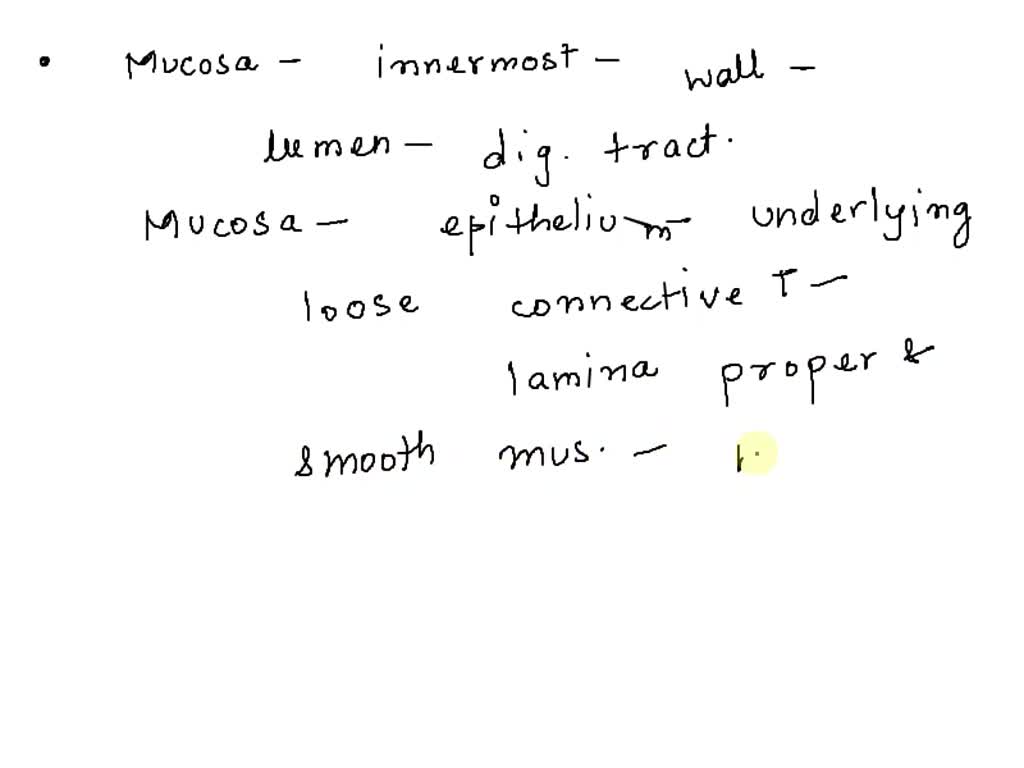 • Mucosa - innermost - wall -
lumen - dig. tract.
Mucosa - epithelium - underlying
loose connective T -
lamina proper &
smooth mus. -